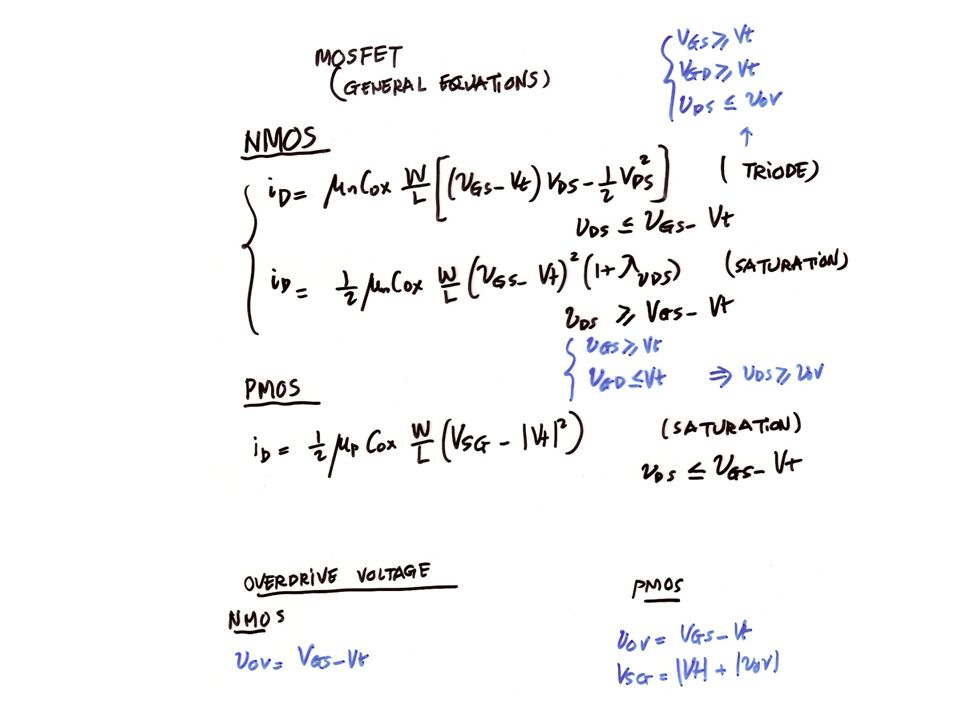 MOSFET
(GENERAL EQUATIONS)
VGS ≥ Vt
VGD ≥ Vt
VDS ≤ VOV
↑
NMOS
iD = μnCox W/L [(VGS - Vt) VDS - 1/2 VDS²] (TRIODE)
VDS ≤ VGS - Vt
iD = 1/2 μnCox W/L (VGS - Vt)² (1+λVDS) (SATURATION)
VDS ≥ VGS - Vt
VGS ≥ Vt
VGD ≤ Vt ⇒ VDS ≥ VOV
PMOS
iD = 1/2 μp Cox W/L (VSG - |Vt|²) (SATURATION)
VDS ≤ VGS - Vt
OVERDRIVE VOLTAGE
NMOS
VOV = VGS - Vt
PMOS
VOV = VGS - Vt
VSG = |Vt| + |VOV|